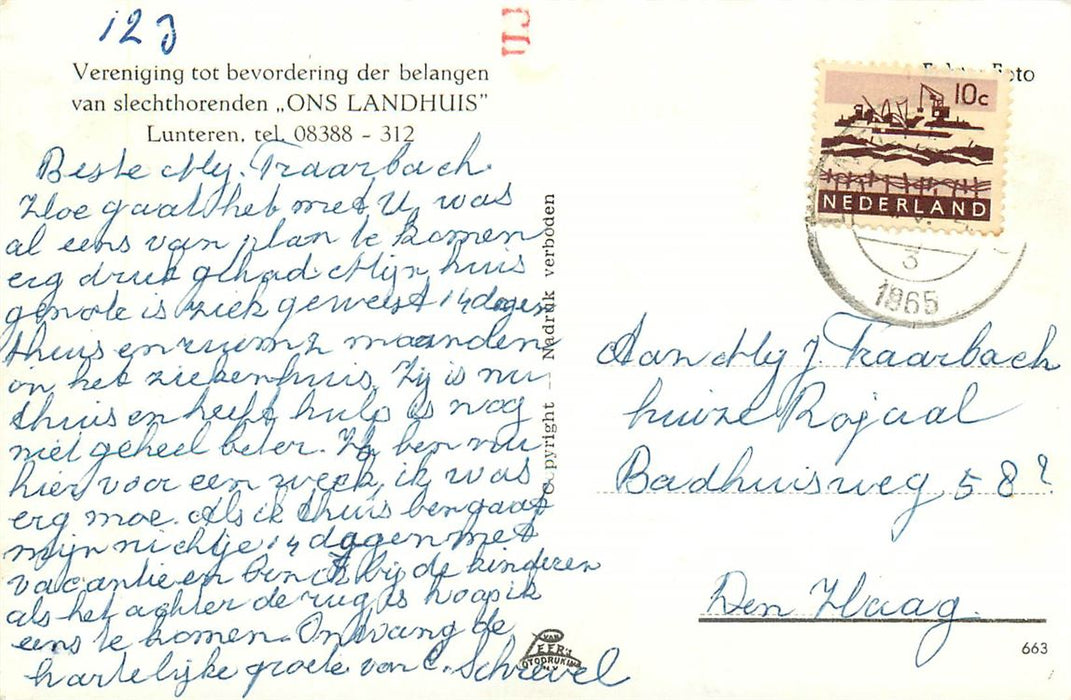 123
Vereniging tot bevordering der belangen
van slechthorenden „ONS LANDHUIS”
Lunteren. tel. 08388 - 312
Beste Mej. Traarbach
Hoe gaat het met U, was
al eens van plan te komen
erg druk gehad Mijn huis
genote is ziek geweest 14 dagen
thuis en ruim 2 maanden
in het ziekenhuis. Zij is nu
thuis en heeft hulp is nog
niet geheel beter. Ik ben nu
hier voor een week, ik was
erg moe. Als ik thuis ben gaat
mijn nichtje 14 dagen met
vacantie en ben ik bij de kinderen
als het achter de rug is hoop ik
eens te komen. Ontvang de
hartelijke groete van C. Schrevel
Copyright - Nadruk verboden
VAN
FOTODRUKIN
N.V.
Foto
10c
NEDERLAND
3
1965
Aan Mej J. Traarbach
huize Rojaal
Badhuisweg 58?
Den Haag.
663